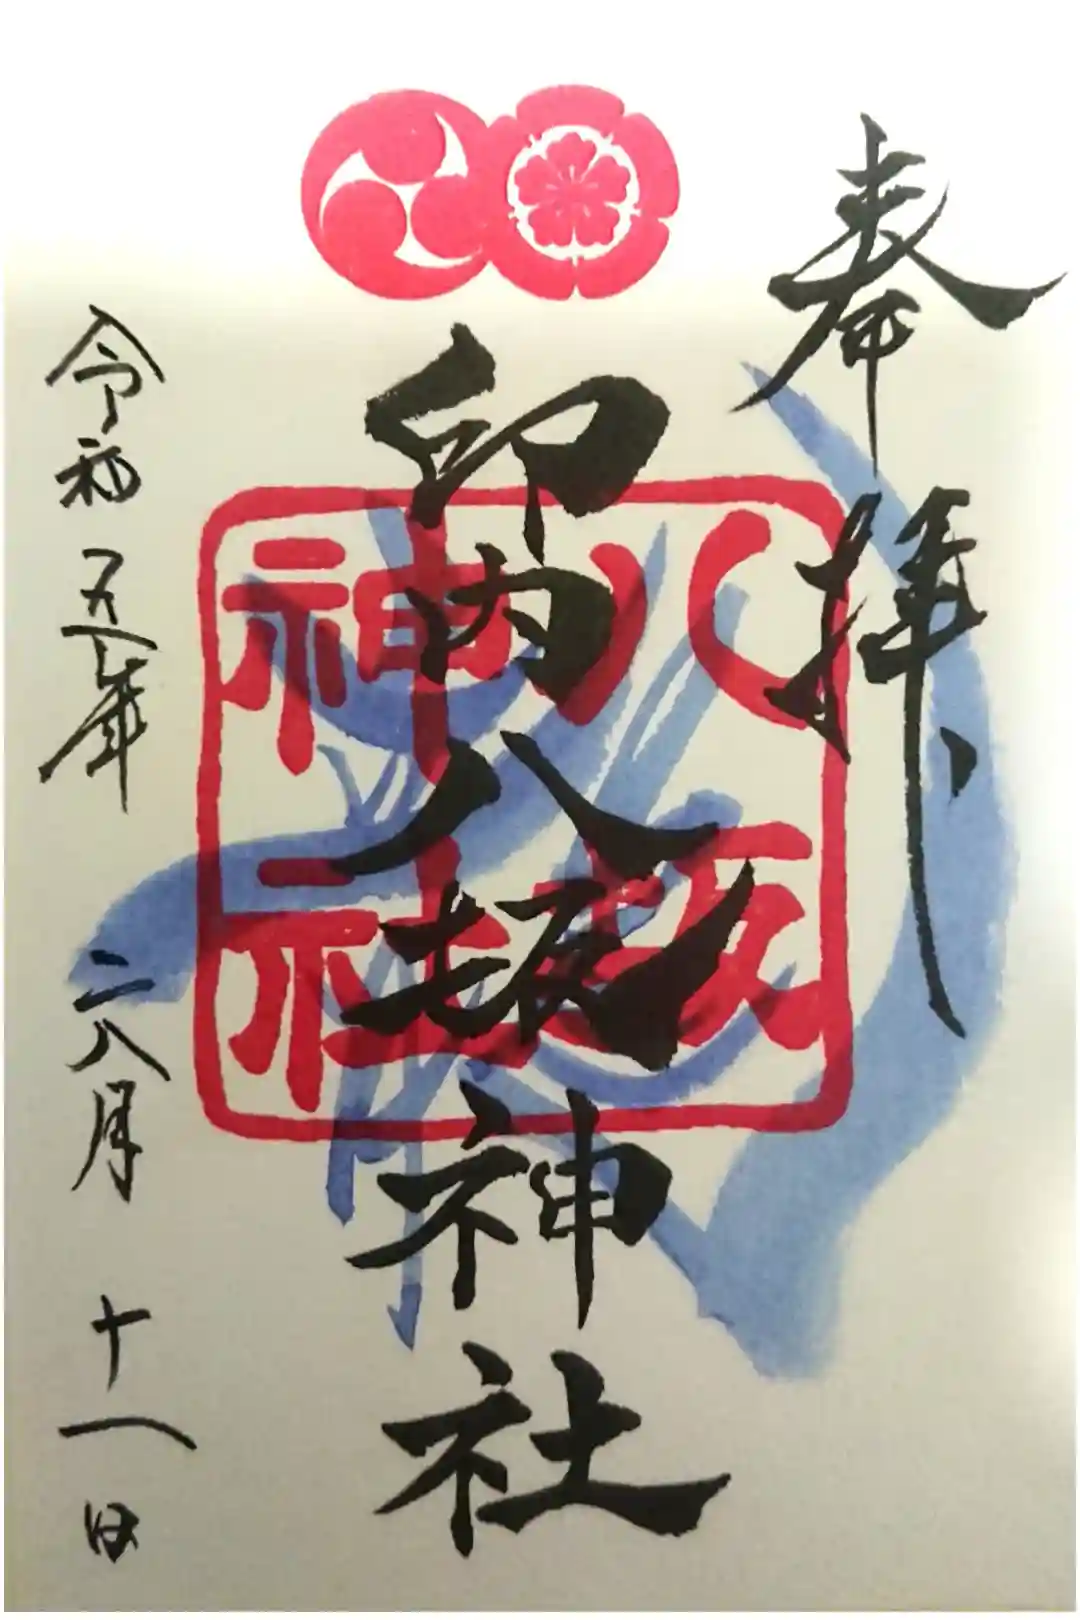 奉拝
印内八坂神社
八坂
神社
令和五年六月十一日